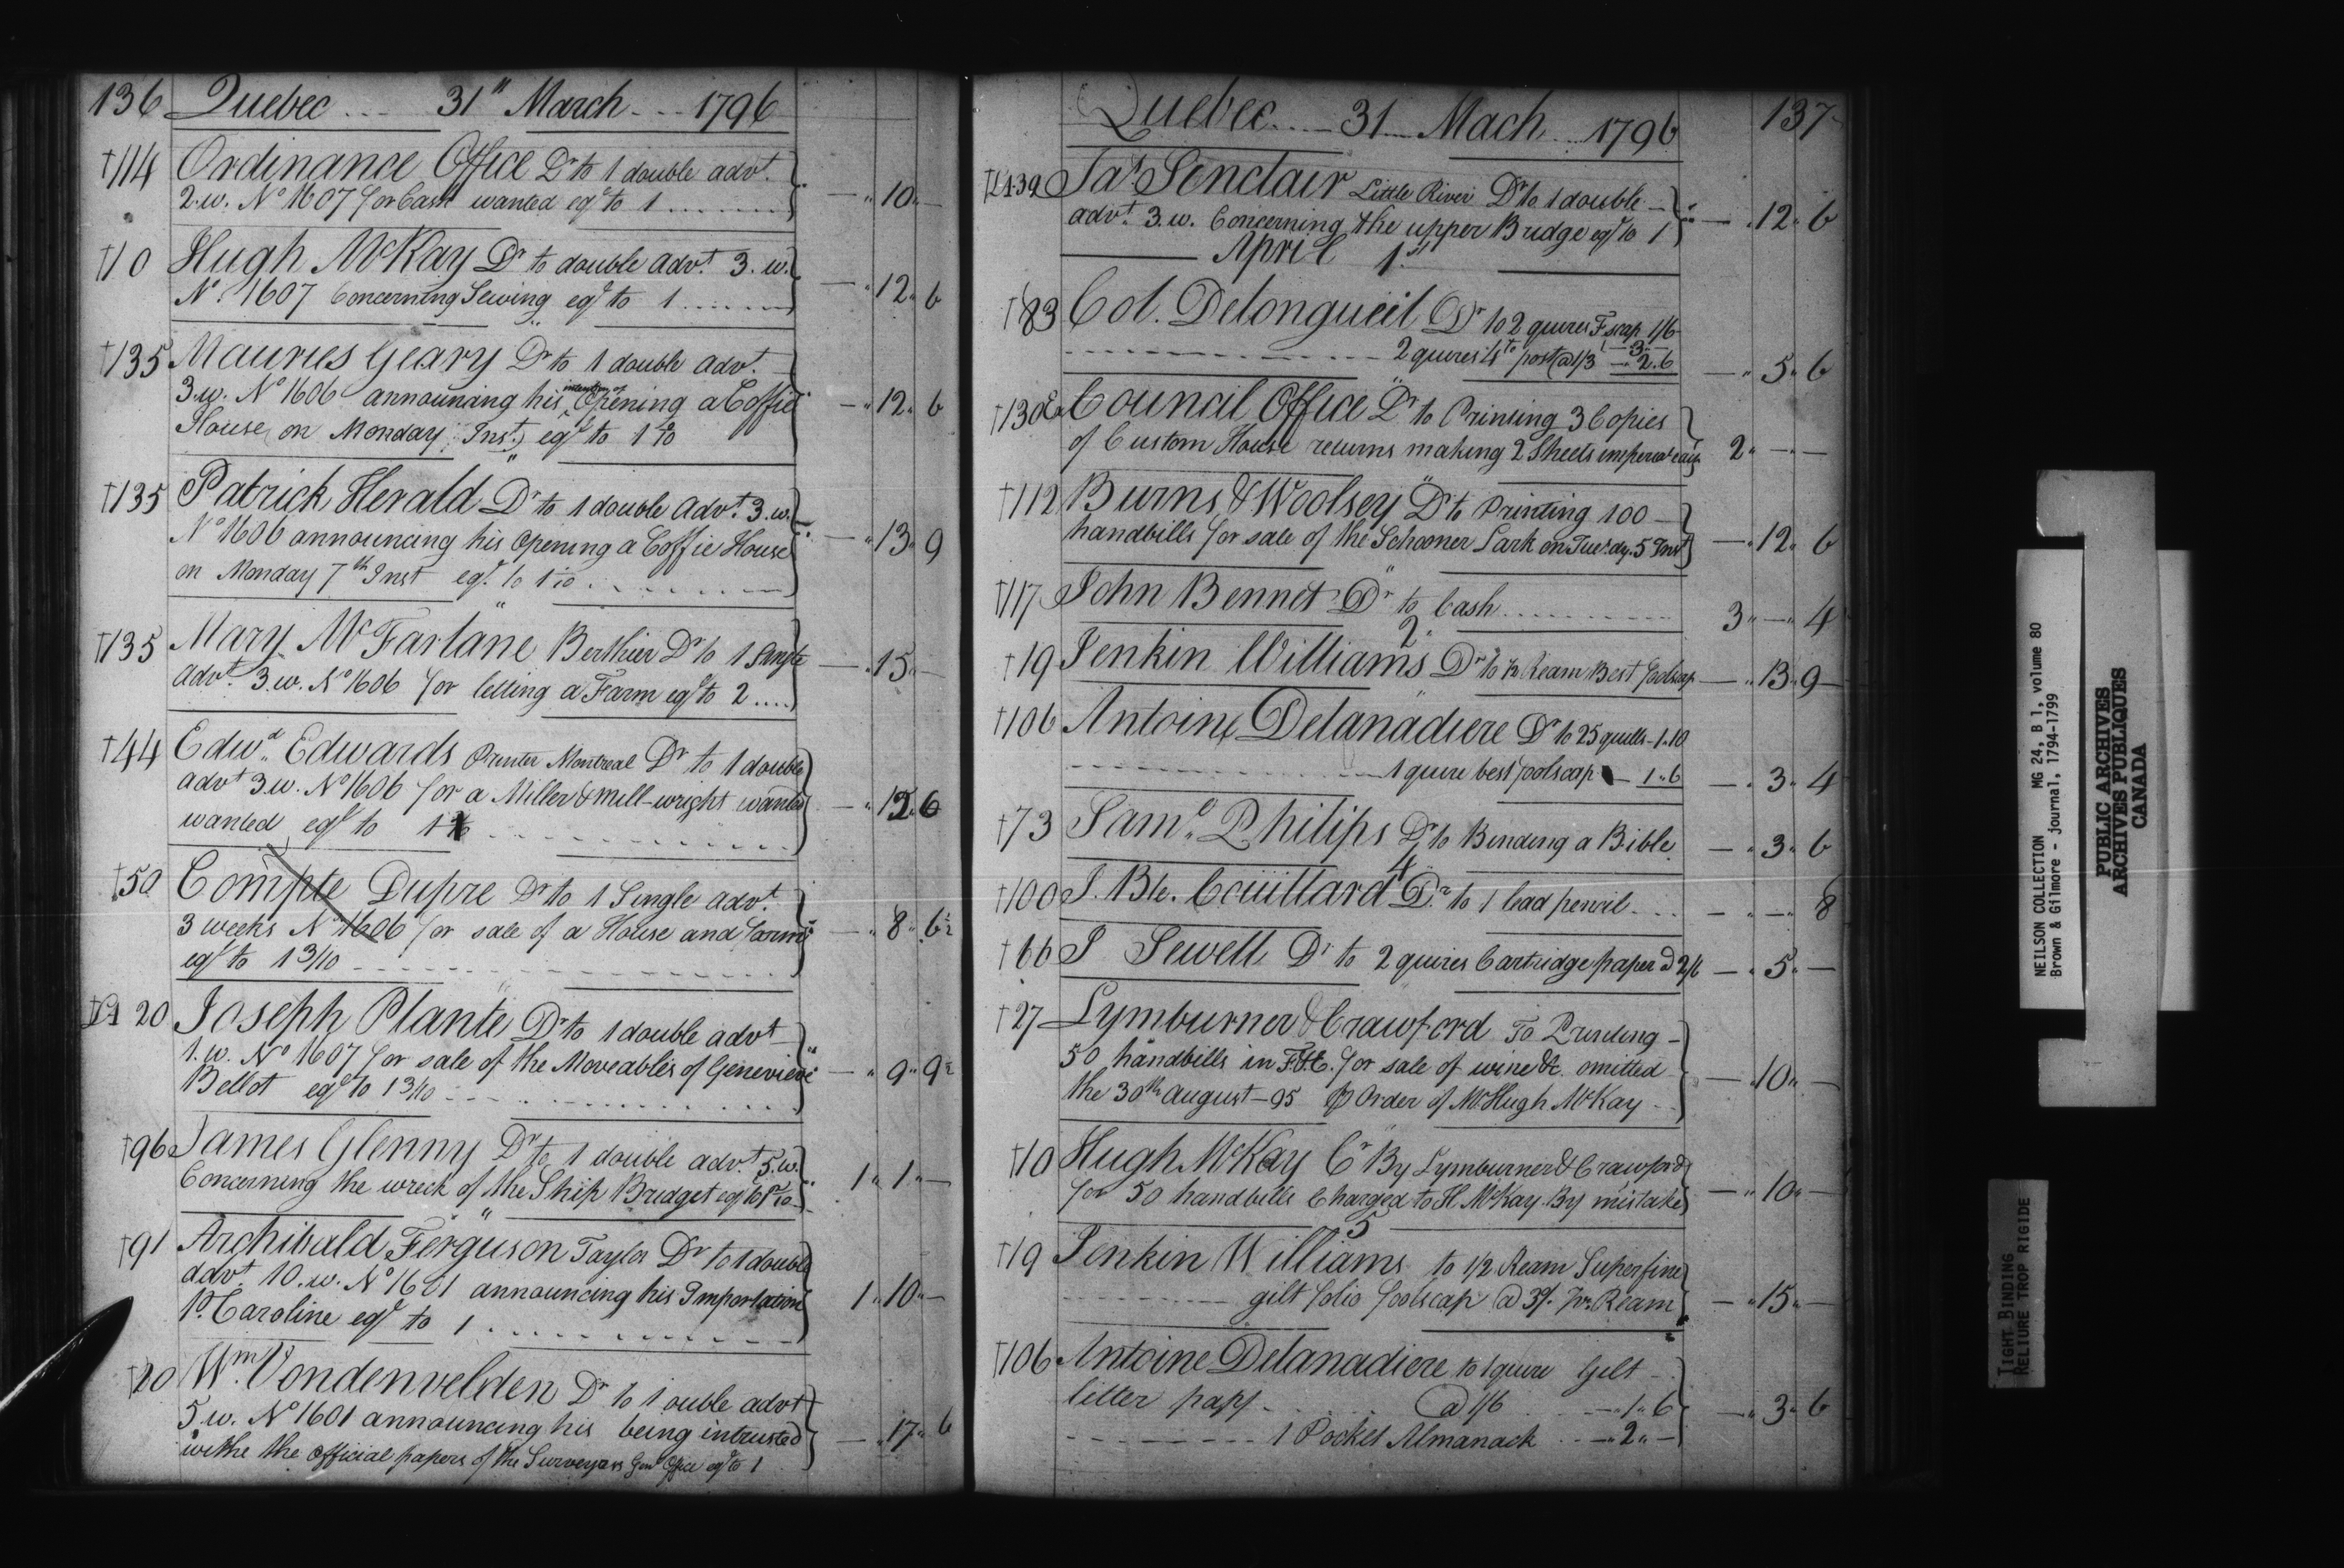 136 Quebec .... 31" March ... 1796
†114 Ordinance Office Dr to 1 double advt.
2.w. No 1607 for Cash wanted eql to 1 ........ — " 10 " —
†10 Hugh McKay Dr to double advt. 3.w.
No. 1607 Concerning Sewing eql to 1 ...... — " 12 " 6
†135 Mauries Geary Dr to 1 double advt.
3.w. No 1606 announcing his intention of Opening a Coffie
House on Monday Inst. eql to 1 1/10 — " 12 " 6
†135 Patrick Herald Dr to 1 double Advt. 3.w.
No 1606 announcing his Opening a Coffie House
on Monday 7th Inst eql. to 1 1/10 . . . . . — " 13 " 9
†135 Mary McFarlane Berthier Dr to 1 Single
advt. 3.w. No 1606 for letting a Farm eql to 2 .... — " 15 " —
†44 Edwd. Edwards Printer Montreal Dr to 1 double
advt 3.w. No 1606 for a Miller & Mill-wright wanted
wanted eql to 1 — " 12 " 6
†50 Compte Dupre Dr to 1 Single advt.
3 weeks No 1606 for sale of a House and
eql to 1 3/10 — " 8 " 6
20 Joseph Plante Dr to 1 double advt
1.w. No 1607 for sale of the Moveables of Genevieve
Bellot eql to 1 3/10 — " 9 " 9
†96 James Glenny Dr to 1 double advt. 5.w.
Concerning the wreck of the Ship Bridget eql to 1 " 1 " —
†91 Archibald Ferguson Taylor Dr to 1 double
advt. 10.w. No 1601 announcing his Importation
Pr. Caroline eql to 1 . . . . . . 1 " 10 " —
†20 Wm. Vondenvelden Dr to 1 ouble advt
5.w. No 1601 announcing his being intrusted
withe the Official papers of the Surveyors Genl Office eql to 1 — " 17 " 6
Quebec .... 31 ... Mach ... 1796 137
139 Jas. Senclair Little River Dr to 1 double —
advt. 3.w. Concerning the upper Bridge eql to 1 — " 12 " 6
April 1st
†83 Col. Delongueil Dr to 2 quires Fscap 1/6
— 3 —
2 quires 4to post @ 1/3 — 2 . 6 — " 5 " 6
†130 Council Office Dr to Printing 3 Copies
of Custom House returns making 2 Sheets imperial each 2 " — " —
†112 Burns & Woolsey Dr to Printing 100 —
handbills for sale of the Schooner Lark on Tuesdy. 5 Inst — " 12 " 6
†117 John Bennet Dr to Cash ........ 3 " — " 4
2
†19 Jenkin Williams Dr to 1/2 Ream Best foolscap — " 13 " 9
†106 Antoine Delanadiere Dr to 25 quills — 1 " 10
1 quire best foolscap — 1 " 6 — " 3 " 4
†73 Saml. Philips Dr to Binding a Bible — " 3 " 6
4
†100 J. Bte. Couillard Dr to 1 lead pencil .... — " — " 8
†66 J Sewell Dr to 2 quires Cartridge paper @ 2/6 — " 5 " —
†27 Lymburner & Crawford To Printing —
50 handbills in for sale of wine &c. omitted
the 30th August — 95 Pr Order of Mr Hugh McKay .. — " 10 " —
†10 Hugh McKay Cr By Lymburner & Crawford
for 50 handbills Charged to H. McKay By mistake — " 10 " —
5
†19 Jenkin Williams to 1/2 Ream Superfine
gilt folio foolscap @ 3/. pr. Ream — " 15 " —
†106 Antoine Delanadiere to 1 quire Gilt
litter papr . . . @ 1/6 . . — " 1 " 6
1 Pocket Almanack . . — " 2 " — — " 3 " 6
NEILSON COLLECTION MG 24, B 1, volume 80
Brown & Gilmore - journal, 1794-1799
PUBLIC ARCHIVES
ARCHIVES PUBLIQUES
CANADA
TIGHT BINDING
RELIURE TROP RIGIDE